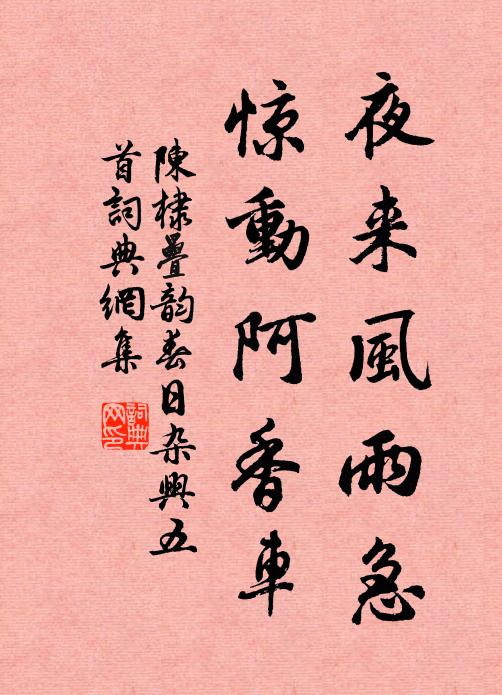 夜来風雨急
惊動阿香車
陳棣疊韵春日杂興五
首詞典網集
詞典网印